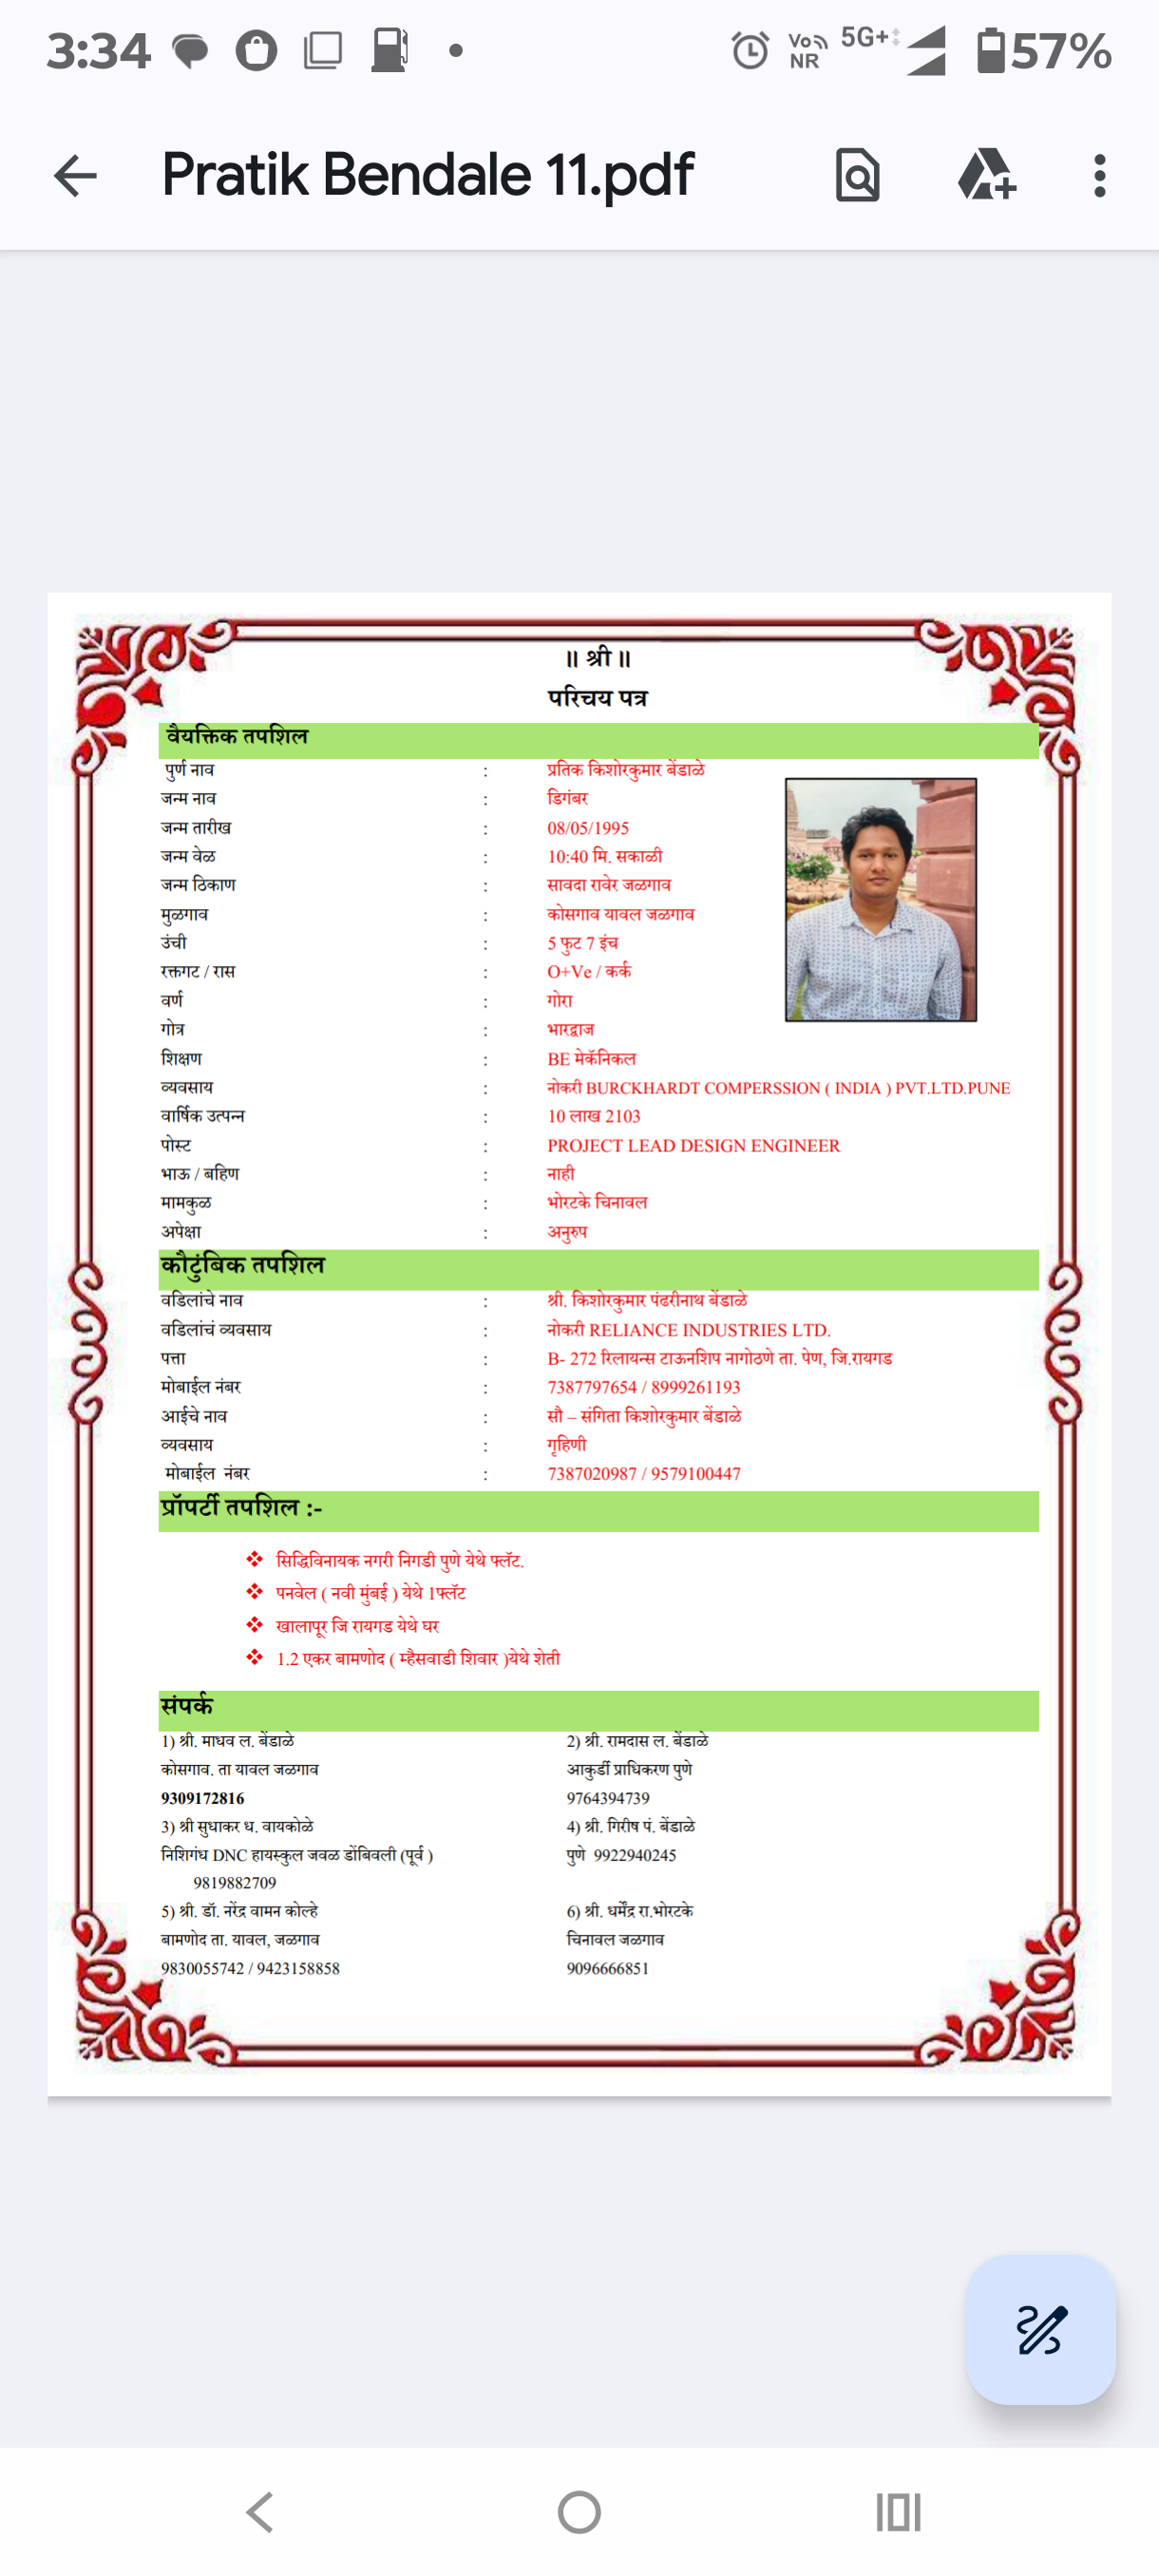 3:34
Vo
NR
5G+
57%
Pratik Bendale 11.pdf
॥ श्री ॥
परिचय पत्र
वैयक्तिक तपशिल
पुर्ण नाव : प्रतिक किशोरकुमार बेंडाळे
जन्म नाव : डिगंबर
जन्म तारीख : 08/05/1995
जन्म वेळ : 10:40 मि. सकाळी
जन्म ठिकाण : सावदा रावेर जळगाव
मुळगाव : कोसगाव यावल जळगाव
उंची : 5 फुट 7 इंच
रक्तगट / रास : O+Ve / कर्क
वर्ण : गोरा
गोत्र : भारद्वाज
शिक्षण : BE मेकॅनिकल
व्यवसाय : नोकरी BURCKHARDT COMPERSSION ( INDIA ) PVT.LTD.PUNE
वार्षिक उत्पन्न : 10 लाख 2103
पोस्ट : PROJECT LEAD DESIGN ENGINEER
भाऊ / बहिण : नाही
मामकुळ : भोरटके चिनावल
अपेक्षा : अनुरुप
कौटुंबिक तपशिल
वडिलांचे नाव : श्री. किशोरकुमार पंढरीनाथ बेंडाळे
वडिलांचं व्यवसाय : नोकरी RELIANCE INDUSTRIES LTD.
पत्ता : B- 272 रिलायन्स टाऊनशिप नागोठणे ता. पेण, जि.रायगड
मोबाईल नंबर : 7387797654 / 8999261193
आईचे नाव : सौ – संगिता किशोरकुमार बेंडाळे
व्यवसाय : गृहिणी
मोबाईल नंबर : 7387020987 / 9579100447
प्रॉपर्टी तपशिल :-
❖ सिद्धिविनायक नगरी निगडी पुणे येथे फ्लॅट.
❖ पनवेल ( नवी मुंबई ) येथे 1फ्लॅट
❖ खालापूर जि रायगड येथे घर
❖ 1.2 एकर बामणोद ( म्हैसवाडी शिवार )येथे शेती
संपर्क
1) श्री. माधव ल. बेंडाळे 2) श्री. रामदास ल. बेंडाळे
कोसगाव. ता यावल जळगाव आकुर्डी प्राधिकरण पुणे
9309172816 9764394739
3) श्री सुधाकर ध. वायकोळे 4) श्री. गिरीष पं. बेंडाळे
निशिगंध DNC हायस्कुल जवळ डोंबिवली (पूर्व ) पुणे 9922940245
9819882709
5) श्री. डॉ. नरेंद्र वामन कोल्हे 6) श्री. धर्मेंद्र रा.भोरटके
बामणोद ता. यावल, जळगाव चिनावल जळगाव
9830055742 / 9423158858 9096666851